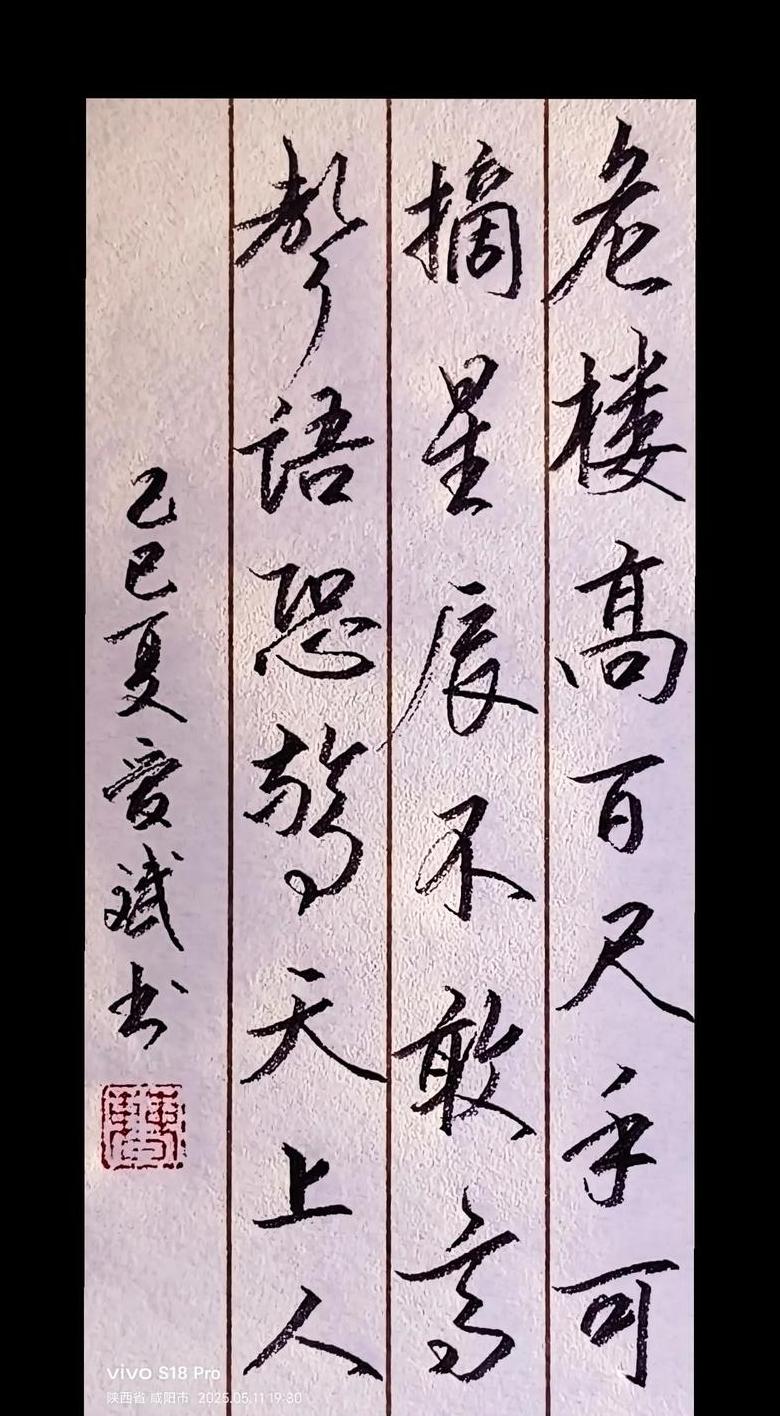 危楼高百尺手可
摘星辰不敢高
聲語恐驚天上人
乙巳夏爱斌书
vivo S18 Pro
陕西省·咸阳市 2025.05.11 19:30